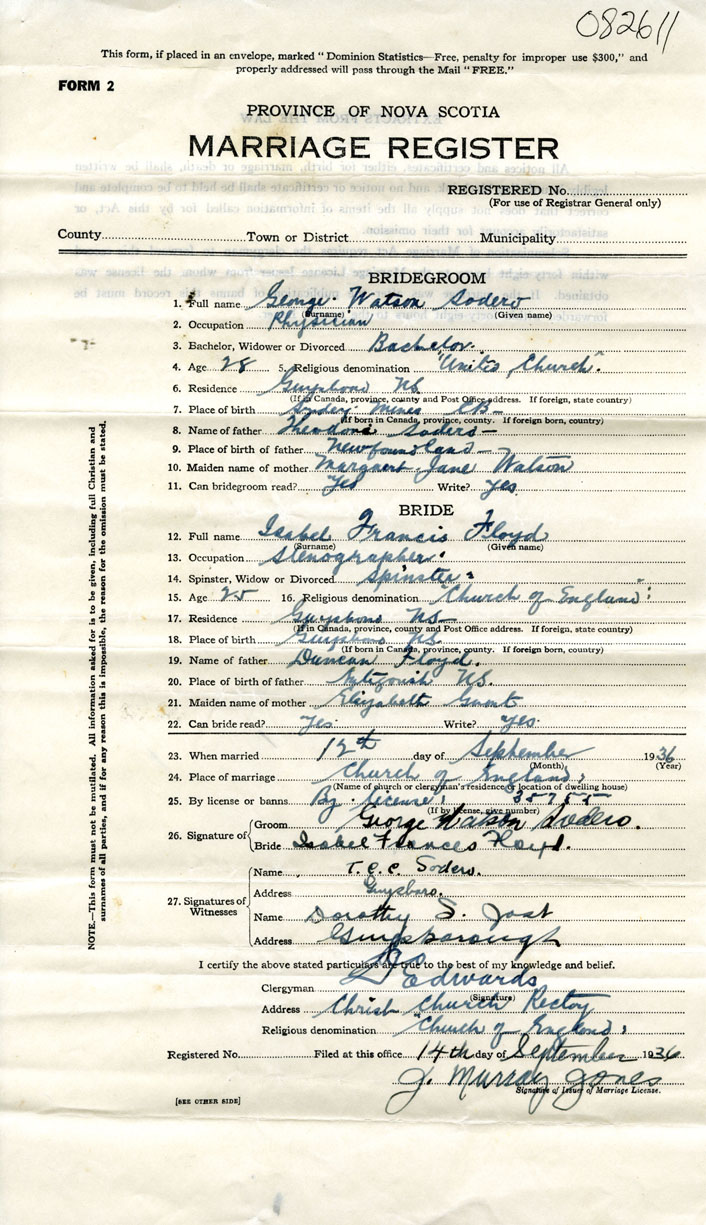 082611
This form, if placed in an envelope, marked "Dominion Statistics—Free, penalty for improper use $300," and
properly addressed will pass through the Mail "FREE."
FORM 2
PROVINCE OF NOVA SCOTIA
MARRIAGE REGISTER
REGISTERED No.
(For use of Registrar General only)
County Town or District Municipality
BRIDEGROOM
1. Full name George Watson Sodero
(Surname) (Given name)
2. Occupation Physician
3. Bachelor, Widower or Divorced Bachelor.
4. Age 28 5. Religious denomination "United Church".
6. Residence Guysboro NS
(If in Canada, province, county and Post Office address. If foreign, state country)
7. Place of birth Sydney Mines CB—
(If born in Canada, province, county. If foreign born, country)
8. Name of father Theodore Sodero—
9. Place of birth of father Newfoundland—
10. Maiden name of mother Margaret Jane Watson
11. Can bridegroom read? Yes Write? Yes
BRIDE
12. Full name Isabel Francis Floyd
(Surname) (Given name)
13. Occupation Stenographer.
14. Spinster, Widow or Divorced Spinster.
15. Age 25 16. Religious denomination "Church of England".
17. Residence Guysboro NS—
(If in Canada, province, county and Post Office address. If foreign, state country)
18. Place of birth Guysboro NS.
(If born in Canada, province, county. If foreign born, country)
19. Name of father Duncan Floyd.
20. Place of birth of father NS.
21. Maiden name of mother Elizabeth Grant
22. Can bride read? Yes. Write? Yes.
23. When married 12th day of September 1936
(Month) (Year)
24. Place of marriage Church of England,
(Name of church or clergyman's residence or location of dwelling house)
25. By license or banns By License, 35755
(If by license, give number)
26. Signature of Groom George Watson Sodero.
Bride Isabel Frances Floyd.
27. Signatures of Witnesses
Name T.C.C. Sodero.
Address Guysboro.
Name Dorothy S. Jost
Address Guysborough
I certify the above stated particulars are true to the best of my knowledge and belief.
Clergyman Edwards
(Signature)
Address Christ Church Rectory
Religious denomination "Church of England,
Registered No. Filed at this office 14th day of September 1936
J. Murray Jones
Signature of Issuer of Marriage License.
[SEE OTHER SIDE]
NOTE.—This form must not be mutilated. All information asked for is to be given, including full Christian and
surnames of all parties, and if for any reason this is impossible, the reason for the omission must be stated.